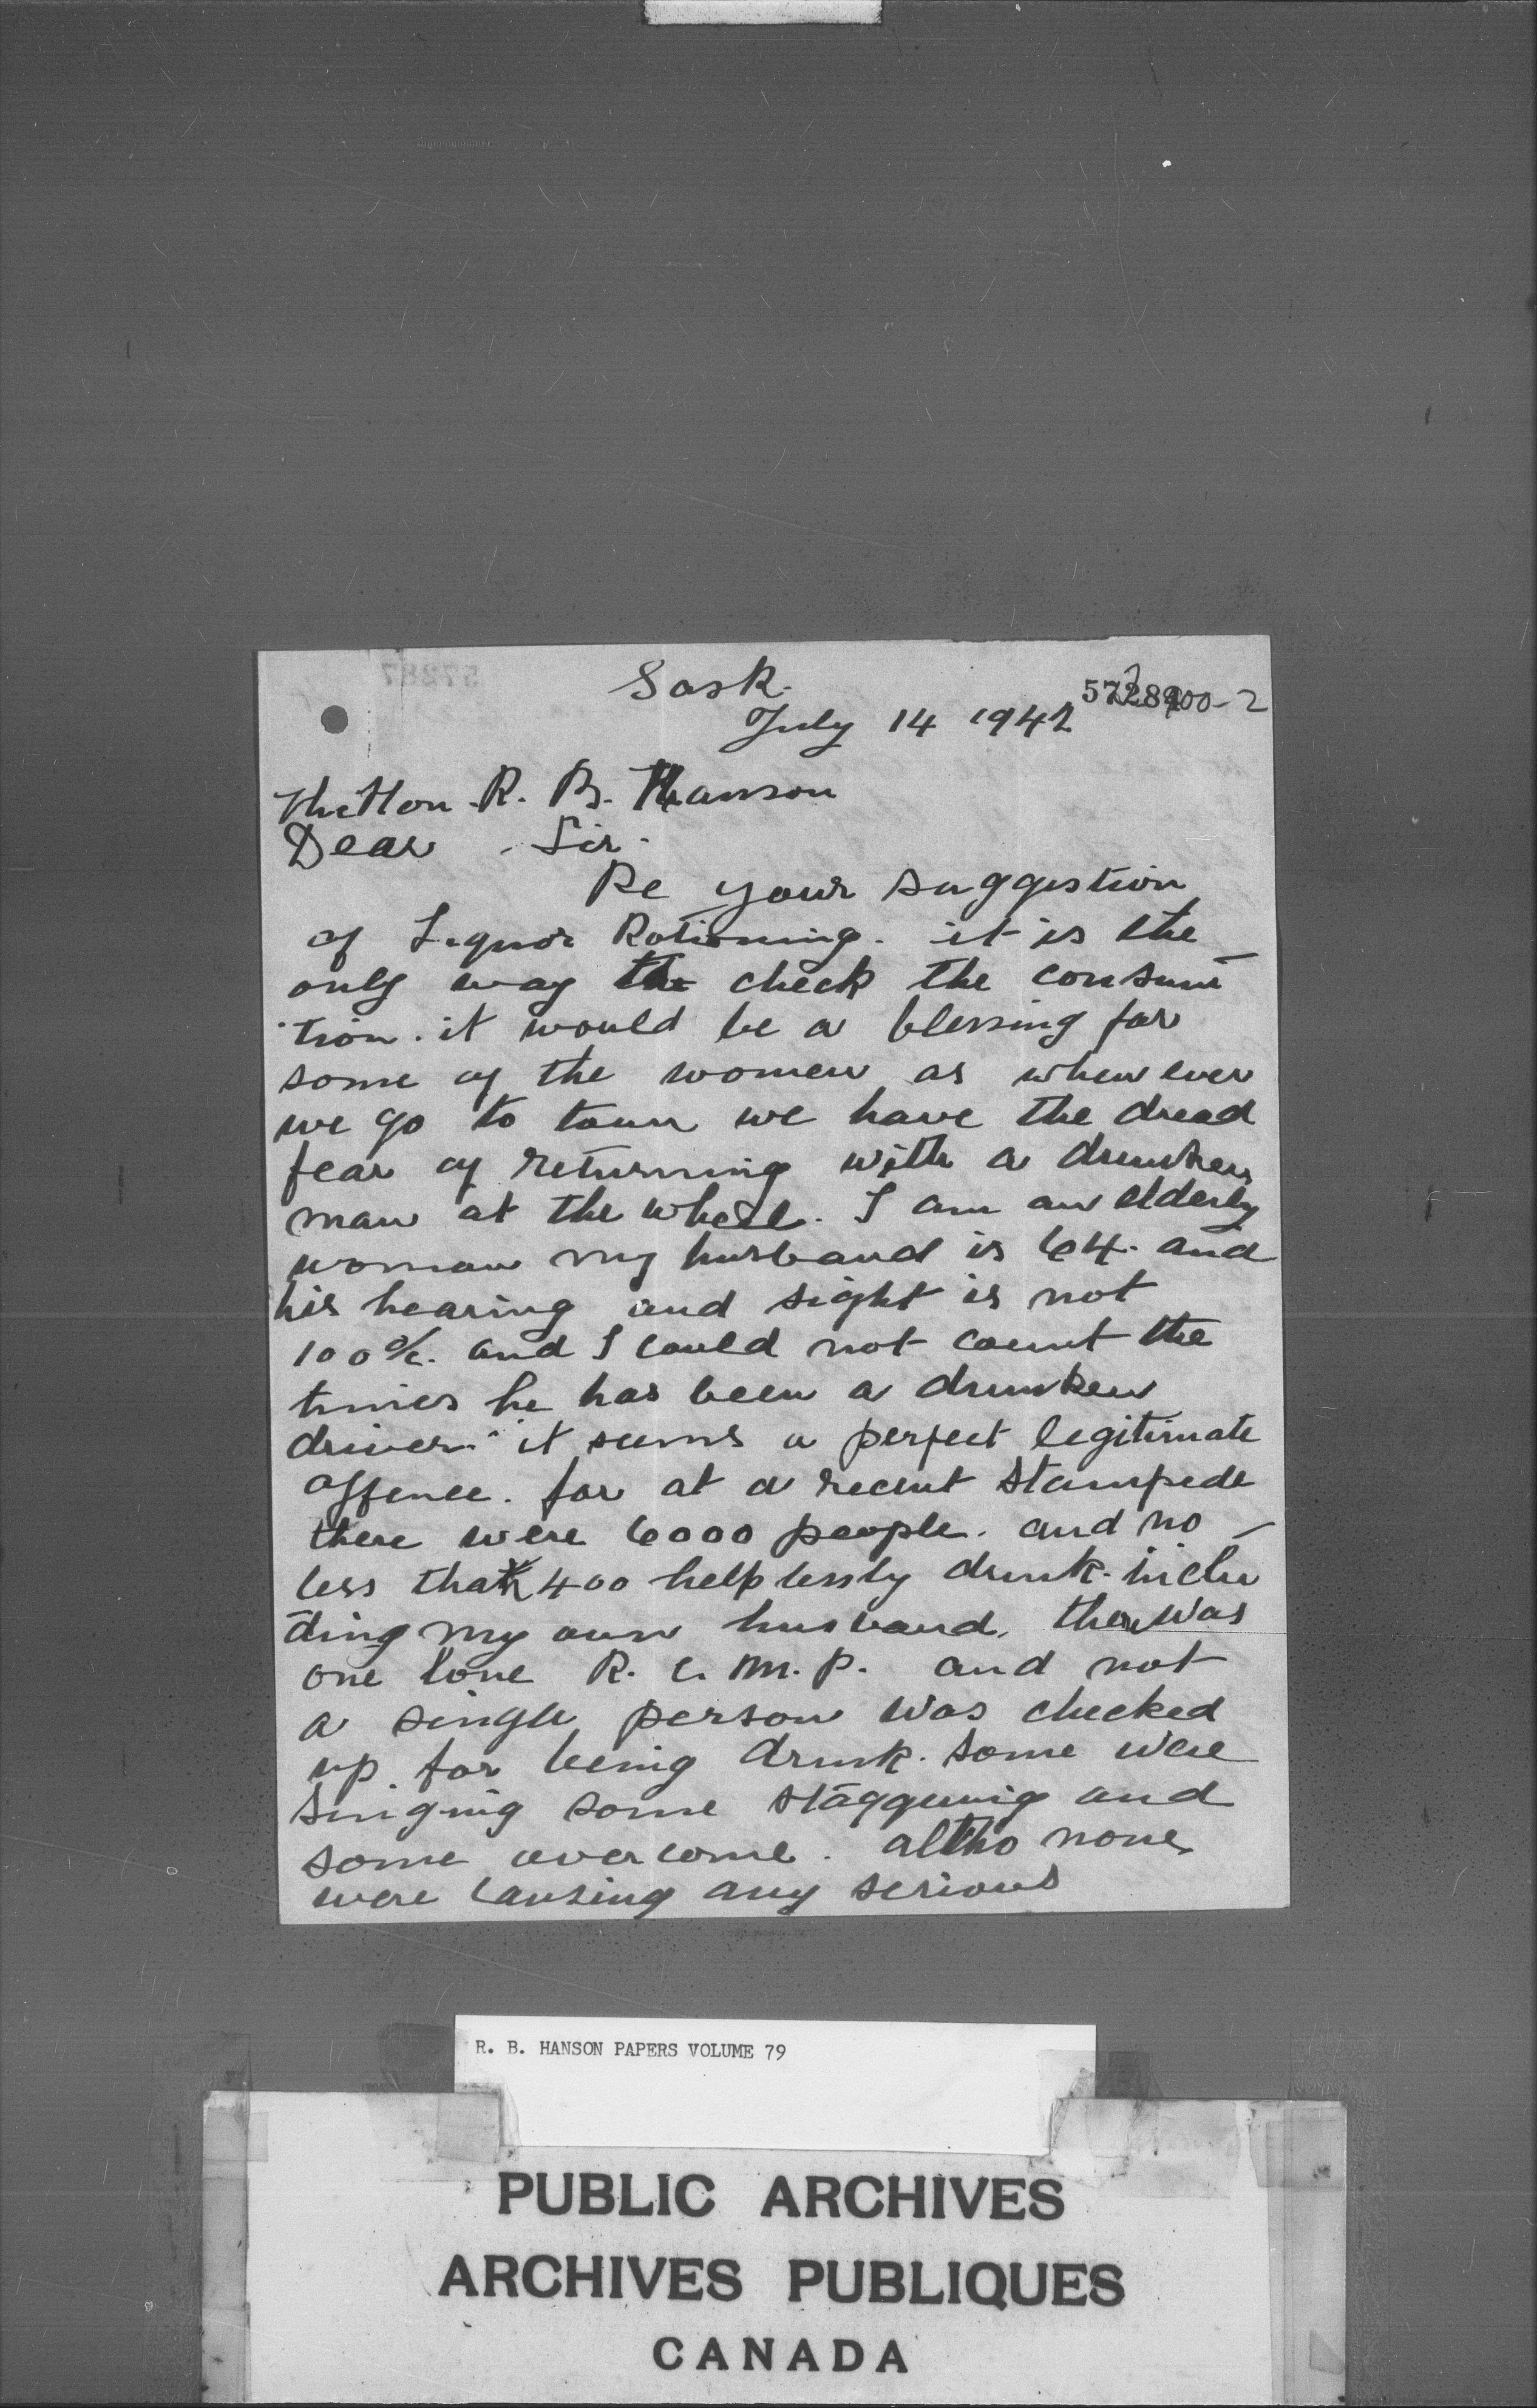 Sask.
July 14 1942
The Hon. R. B. Hanson
Dear Sir.
Re your suggestion
of Liquor Rationing. it is the
only way the check the consum
tion. it would be a blessing for
some of the women as when ever
we go to town we have the dread
fear of returning with a drunken
man at the wheel. I am an elderly
woman my husband is 64. and
his hearing and sight is not
100%. and I could not count the
times he has been a drunken
driver. it seems a perfect legitimate
offence. for at a recent stampede
there were 6000 people. and no
less than 400 helplessly drunk. inclu
ding my own husband. there was
one lone R. C. M. P. and not
a single person was checked
up for being drunk. some were
singing some staggering and
some overcome. altho none
were causing any serious
R. B. HANSON PAPERS VOLUME 79
PUBLIC ARCHIVES
ARCHIVES PUBLIQUES
CANADA